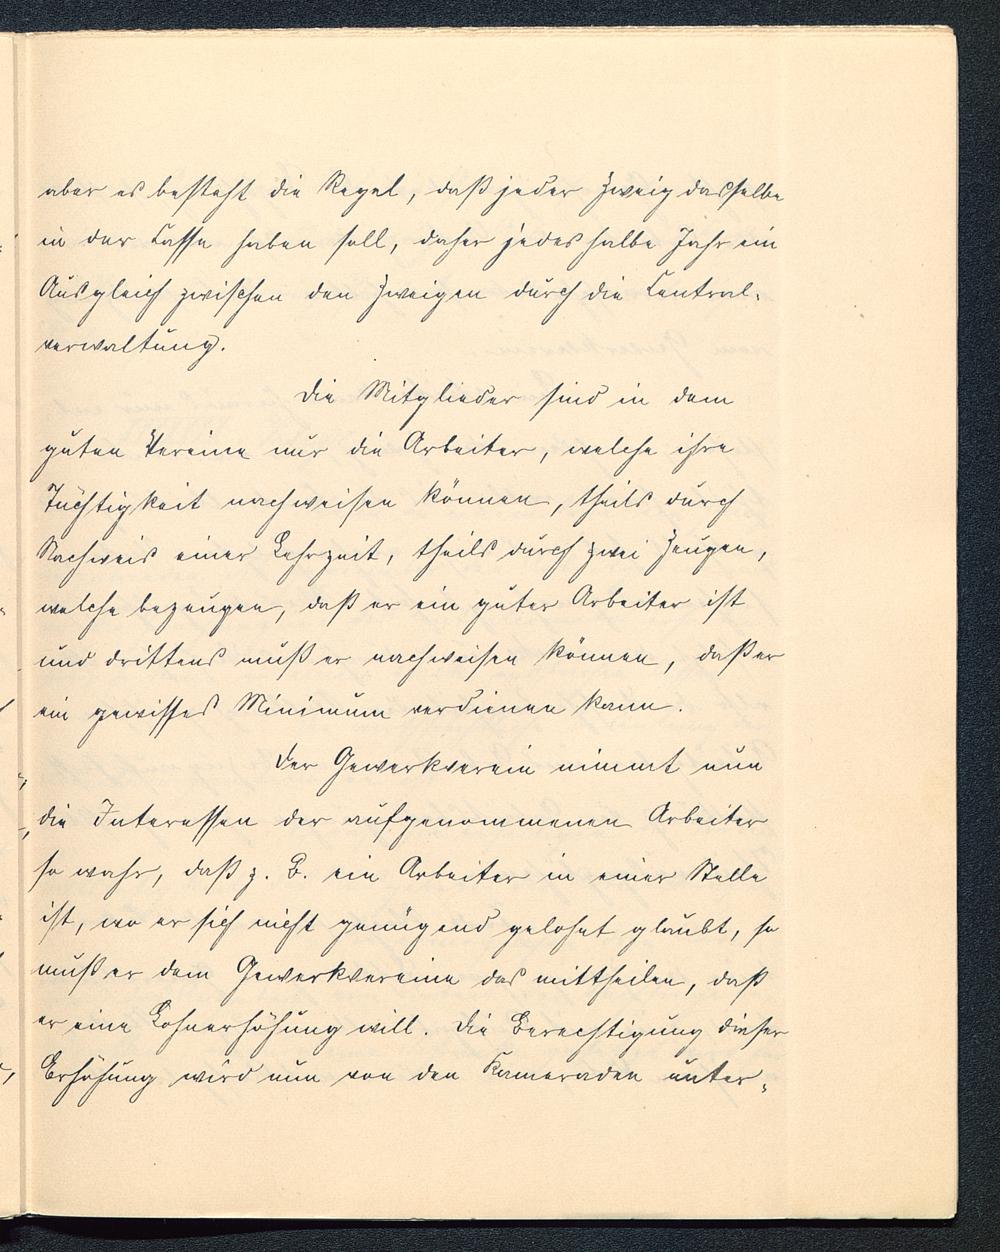 aber es besteht die Regel, daß jeder Zweig dasselbe
in der Casse haben soll, daher jedes halbe Jahr ein
Ausgleich zwischen den Zweigen durch die Central-
verwaltung.
Die Mitglieder sind in dem
guten Vereine nur die Arbeiter, welche ihre
Tüchtigkeit nachweisen können, theils durch
Nachweis einer Lehrzeit, theils durch zwei Zeugen,
welche bezeugen, daß er ein guter Arbeiter ist
und drittens muß er nachweisen können, daß er
ein gewisses Minimum verdienen kann.
Der Gewerkverein nimmt nun
die Interessen der aufgenommenen Arbeiter
so wahr, daß z. B. ein Arbeiter in einer Stelle
ist, wo er sich nicht genügend gelohnt glaubt, so
muß er dem Gewerkvereine das mittheilen, daß
er eine Lohnerhöhung will. Die Berechtigung dieser
Erhöhung wird nun von den Kameraden unter-